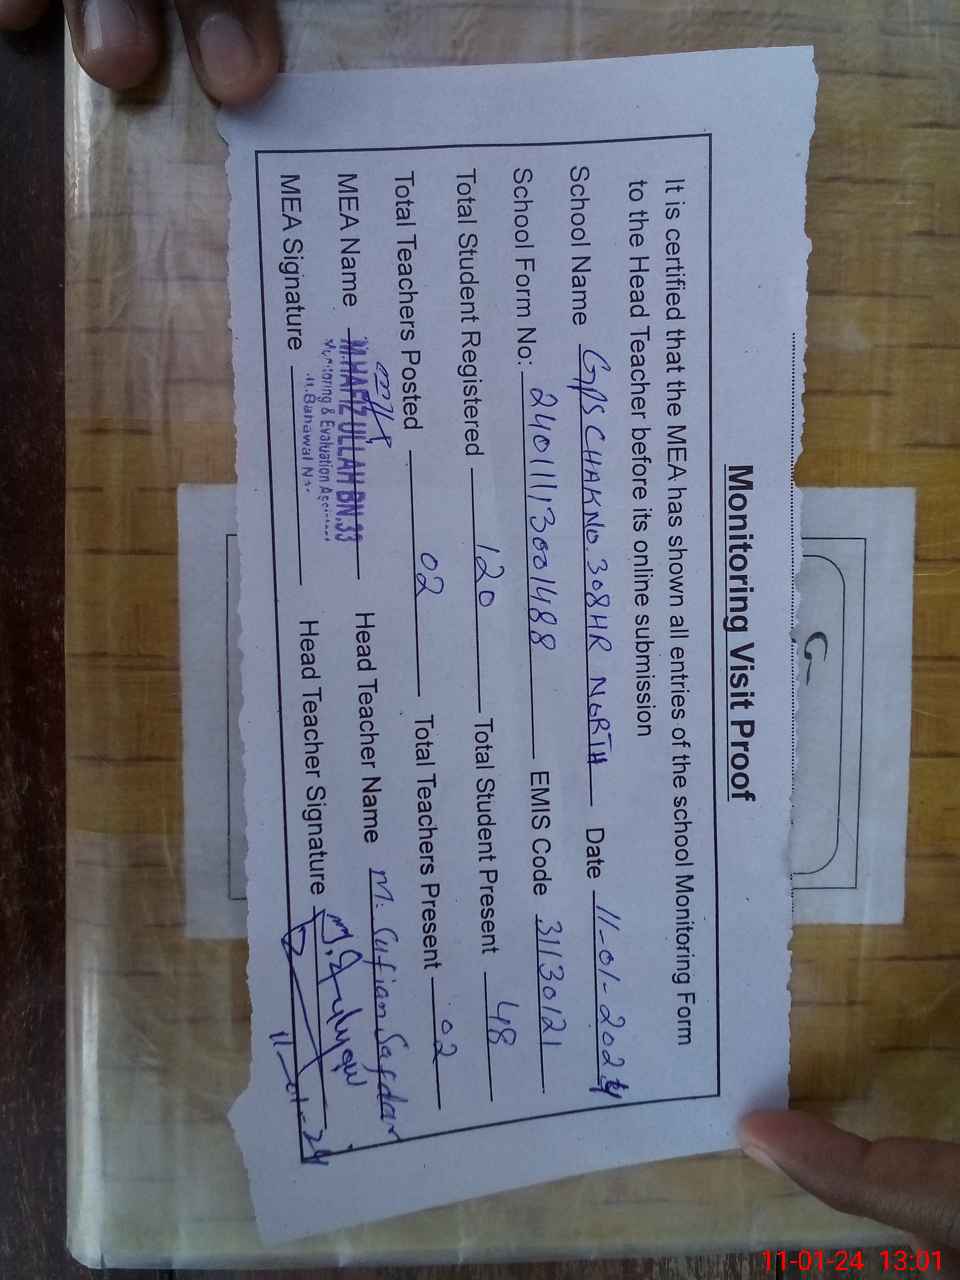 G
Monitoring Visit Proof
It is certified that the MEA has shown all entries of the school Monitoring Form
to the Head Teacher before its online submission
School Name GPS CHAK No. 308HR NORTH Date 11-01-2024
School Form No: 24011113001488 EMIS Code 3113012
Total Student Registered 120 Total Student Present 48
Total Teachers Posted 02 Total Teachers Present 02
MEA Name M.HAFIZ ULLAH BN.33 Head Teacher Name M. Sufian Safdar
Monitoring & Evaluation Assistant
MEA Signature Head Teacher Signature
11-01-24
11-01-24 13:01